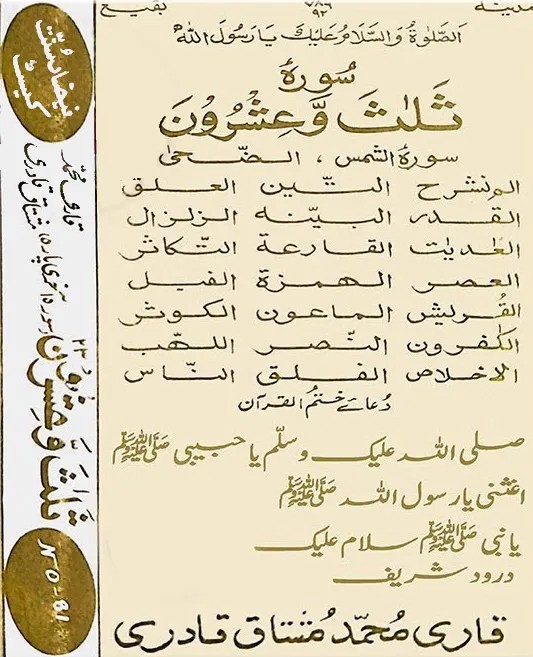 مدینہ
۷۸۶
۹۲
بقیع
الصّلوٰۃ والسّلام علیک یا رسول اللہ
سورۂ
ثَلٰثَ وَّعِشْرُونَ
سورۂ الشمس ، الضّحٰی
المنشرح التّین العلق
القدر البیّنه الزلزال
العٰدیٰت القارعة التّکاثر
العصر الھمزة الفیل
القُریش الماعون الکوثر
الکٰفرون النّصر اللّھب
الاخلاص الفلق النّاس
دُعائے ختمُ القرآن
صلی اللہ علیک وسلّم یا حبیبی ﷺ
اغثنی یا رسول اللہ ﷺ
یا نبی ﷺ سلام علیک
درود شریف
قاری مُحمّد مُشتاق قادری
فیضانِ سُنّت
کیسٹ
قاری محمّد مشتاق قادری
ثَلٰثَ وَّعِشْرُونَ